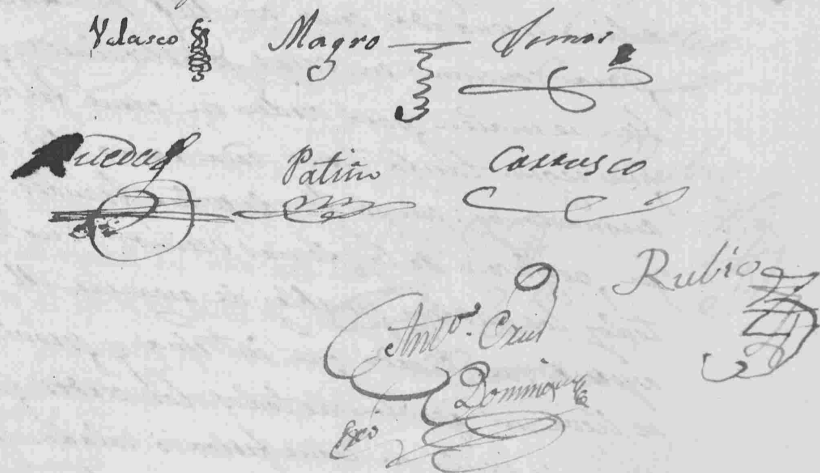 Velasco Magro Lemos
Ruedas Patiño Carrasco
Rubio
Antº. Cruz
Dominguez